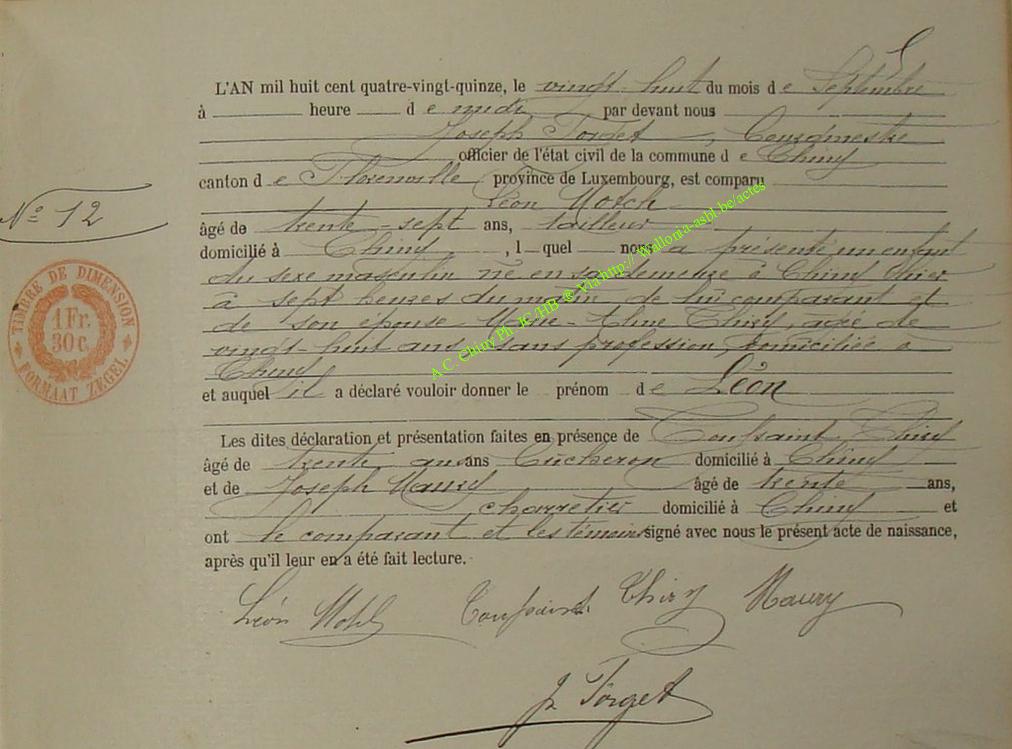 L'AN mil huit cent quatre-vingt-quinze, le vingt-huit du mois de Septembre
à heure de midi par devant nous
Joseph Forget, Bourgmestre
officier de l'état civil de la commune de Chiny
canton de Florenville province de Luxembourg, est comparu
Léon
N° 12
âgé de trente-sept ans, tailleur
domicilié à Chiny, l quel nous a présenté un enfant
du sexe masculin né en sa demeure à Chiny hier
à sept heures du matin, de lui comparant et
de son épouse Marie- Thiry, agée de
vingt-huit ans, sans profession, domiciliée à
Chiny
et auquel il a déclaré vouloir donner le prénom de Léon
Les dites déclaration et présentation faites en présence de Toussaint Thiry
âgé de trente ans ans bûcheron domicilié à Chiny
et de Joseph Maury âgé de trente ans,
charretier domicilié à Chiny et
ont le comparant et les témoins signé avec nous le présent acte de naissance,
après qu'il leur en a été fait lecture.
Léon Toussaint Thiry Maury
J. Forget
TIMBRE DE DIMENSION
1 Fr.
30 c.
FORMAAT ZEGEL
A.C. Chiny Ph JC HB © Via http://Wallonia-asbl.be/actes